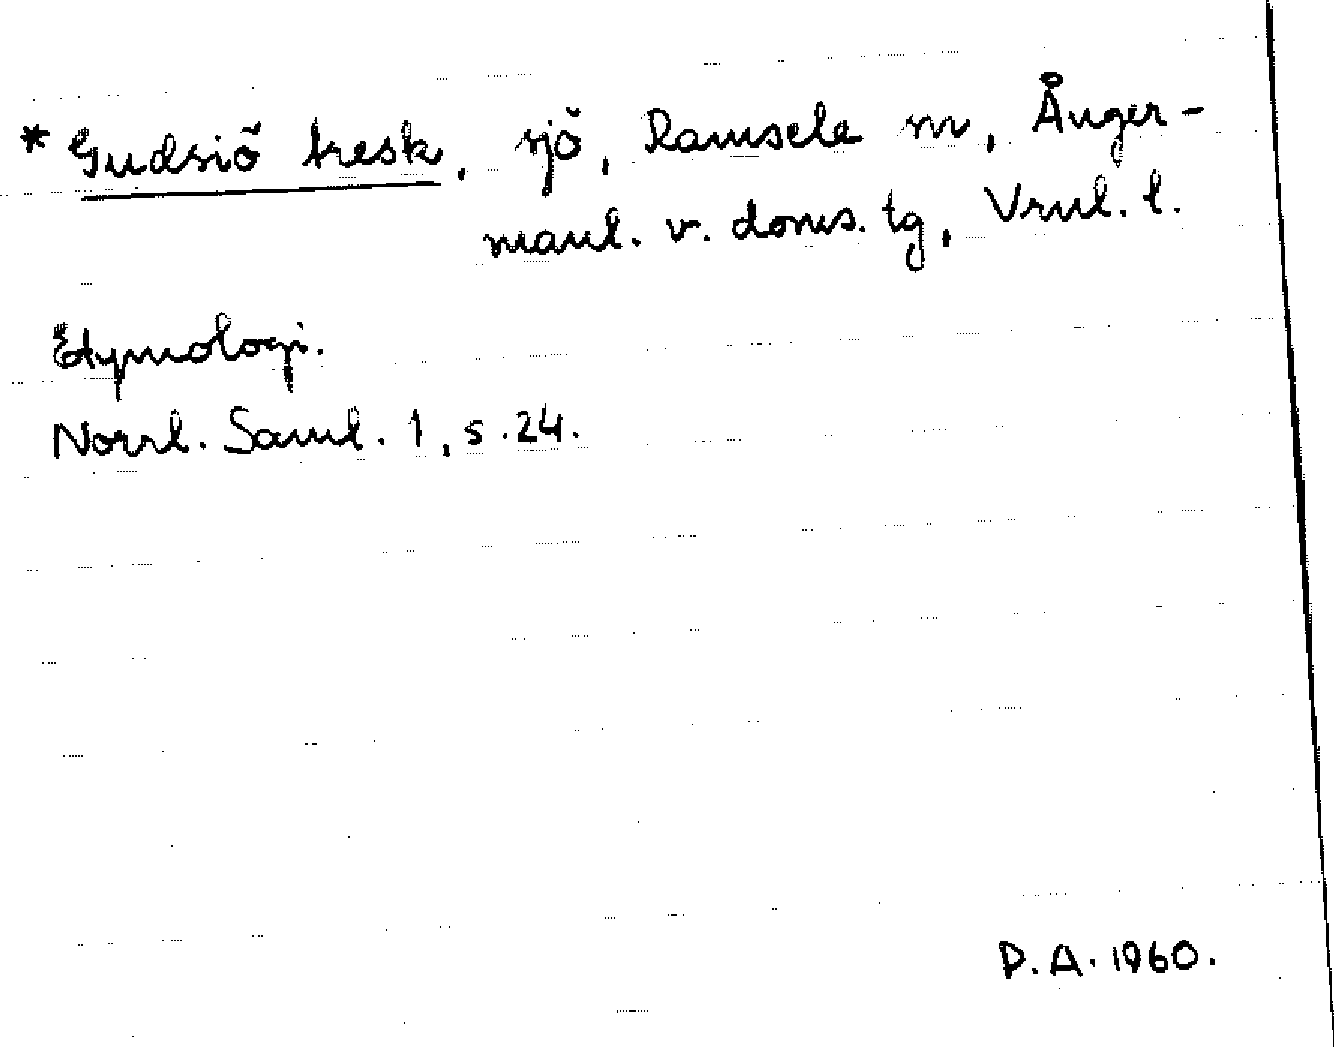 *Gudsiö tresk, sjö, Ramsele sn, Ånger-
manl. v. doms. tg, Vrnl. l.
Etymologi.
Norrl. Saml. 1, s. 24.
D.A. 1960.